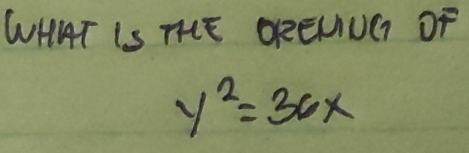 WHAT IS THE OPENING OF
y² = 36x